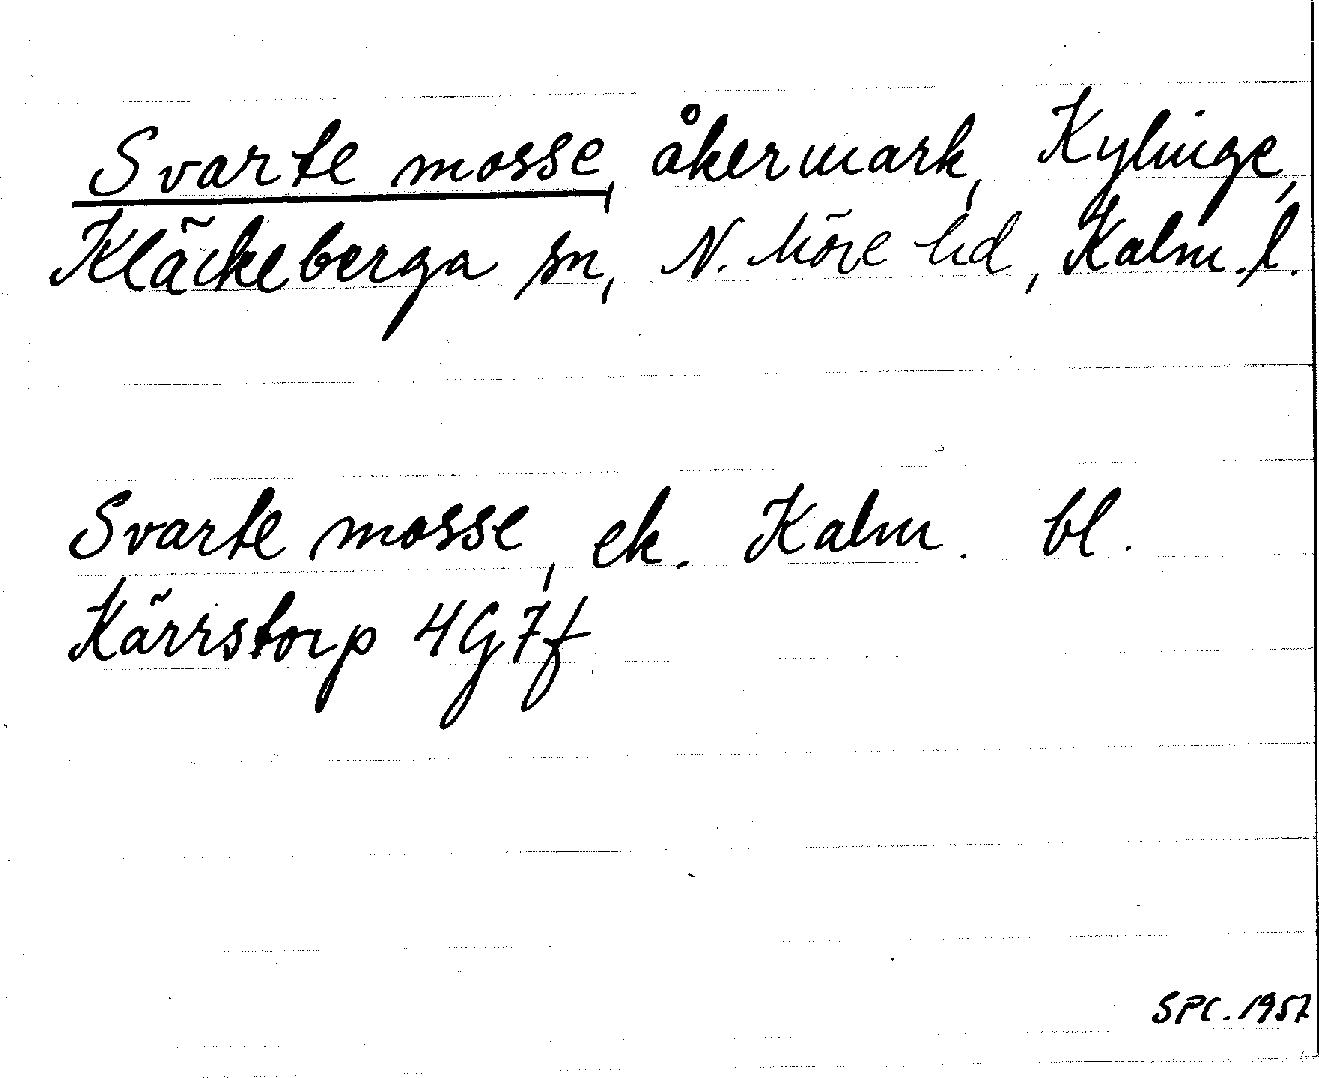 Svarte mosse, åkermark, Kylinge,
Kläckeberga sn, N. Möre hd, Kalm. l.
Svarte mosse, ek. Kalm. bl.
Kärrstorp 4G7f
SPC. 1957